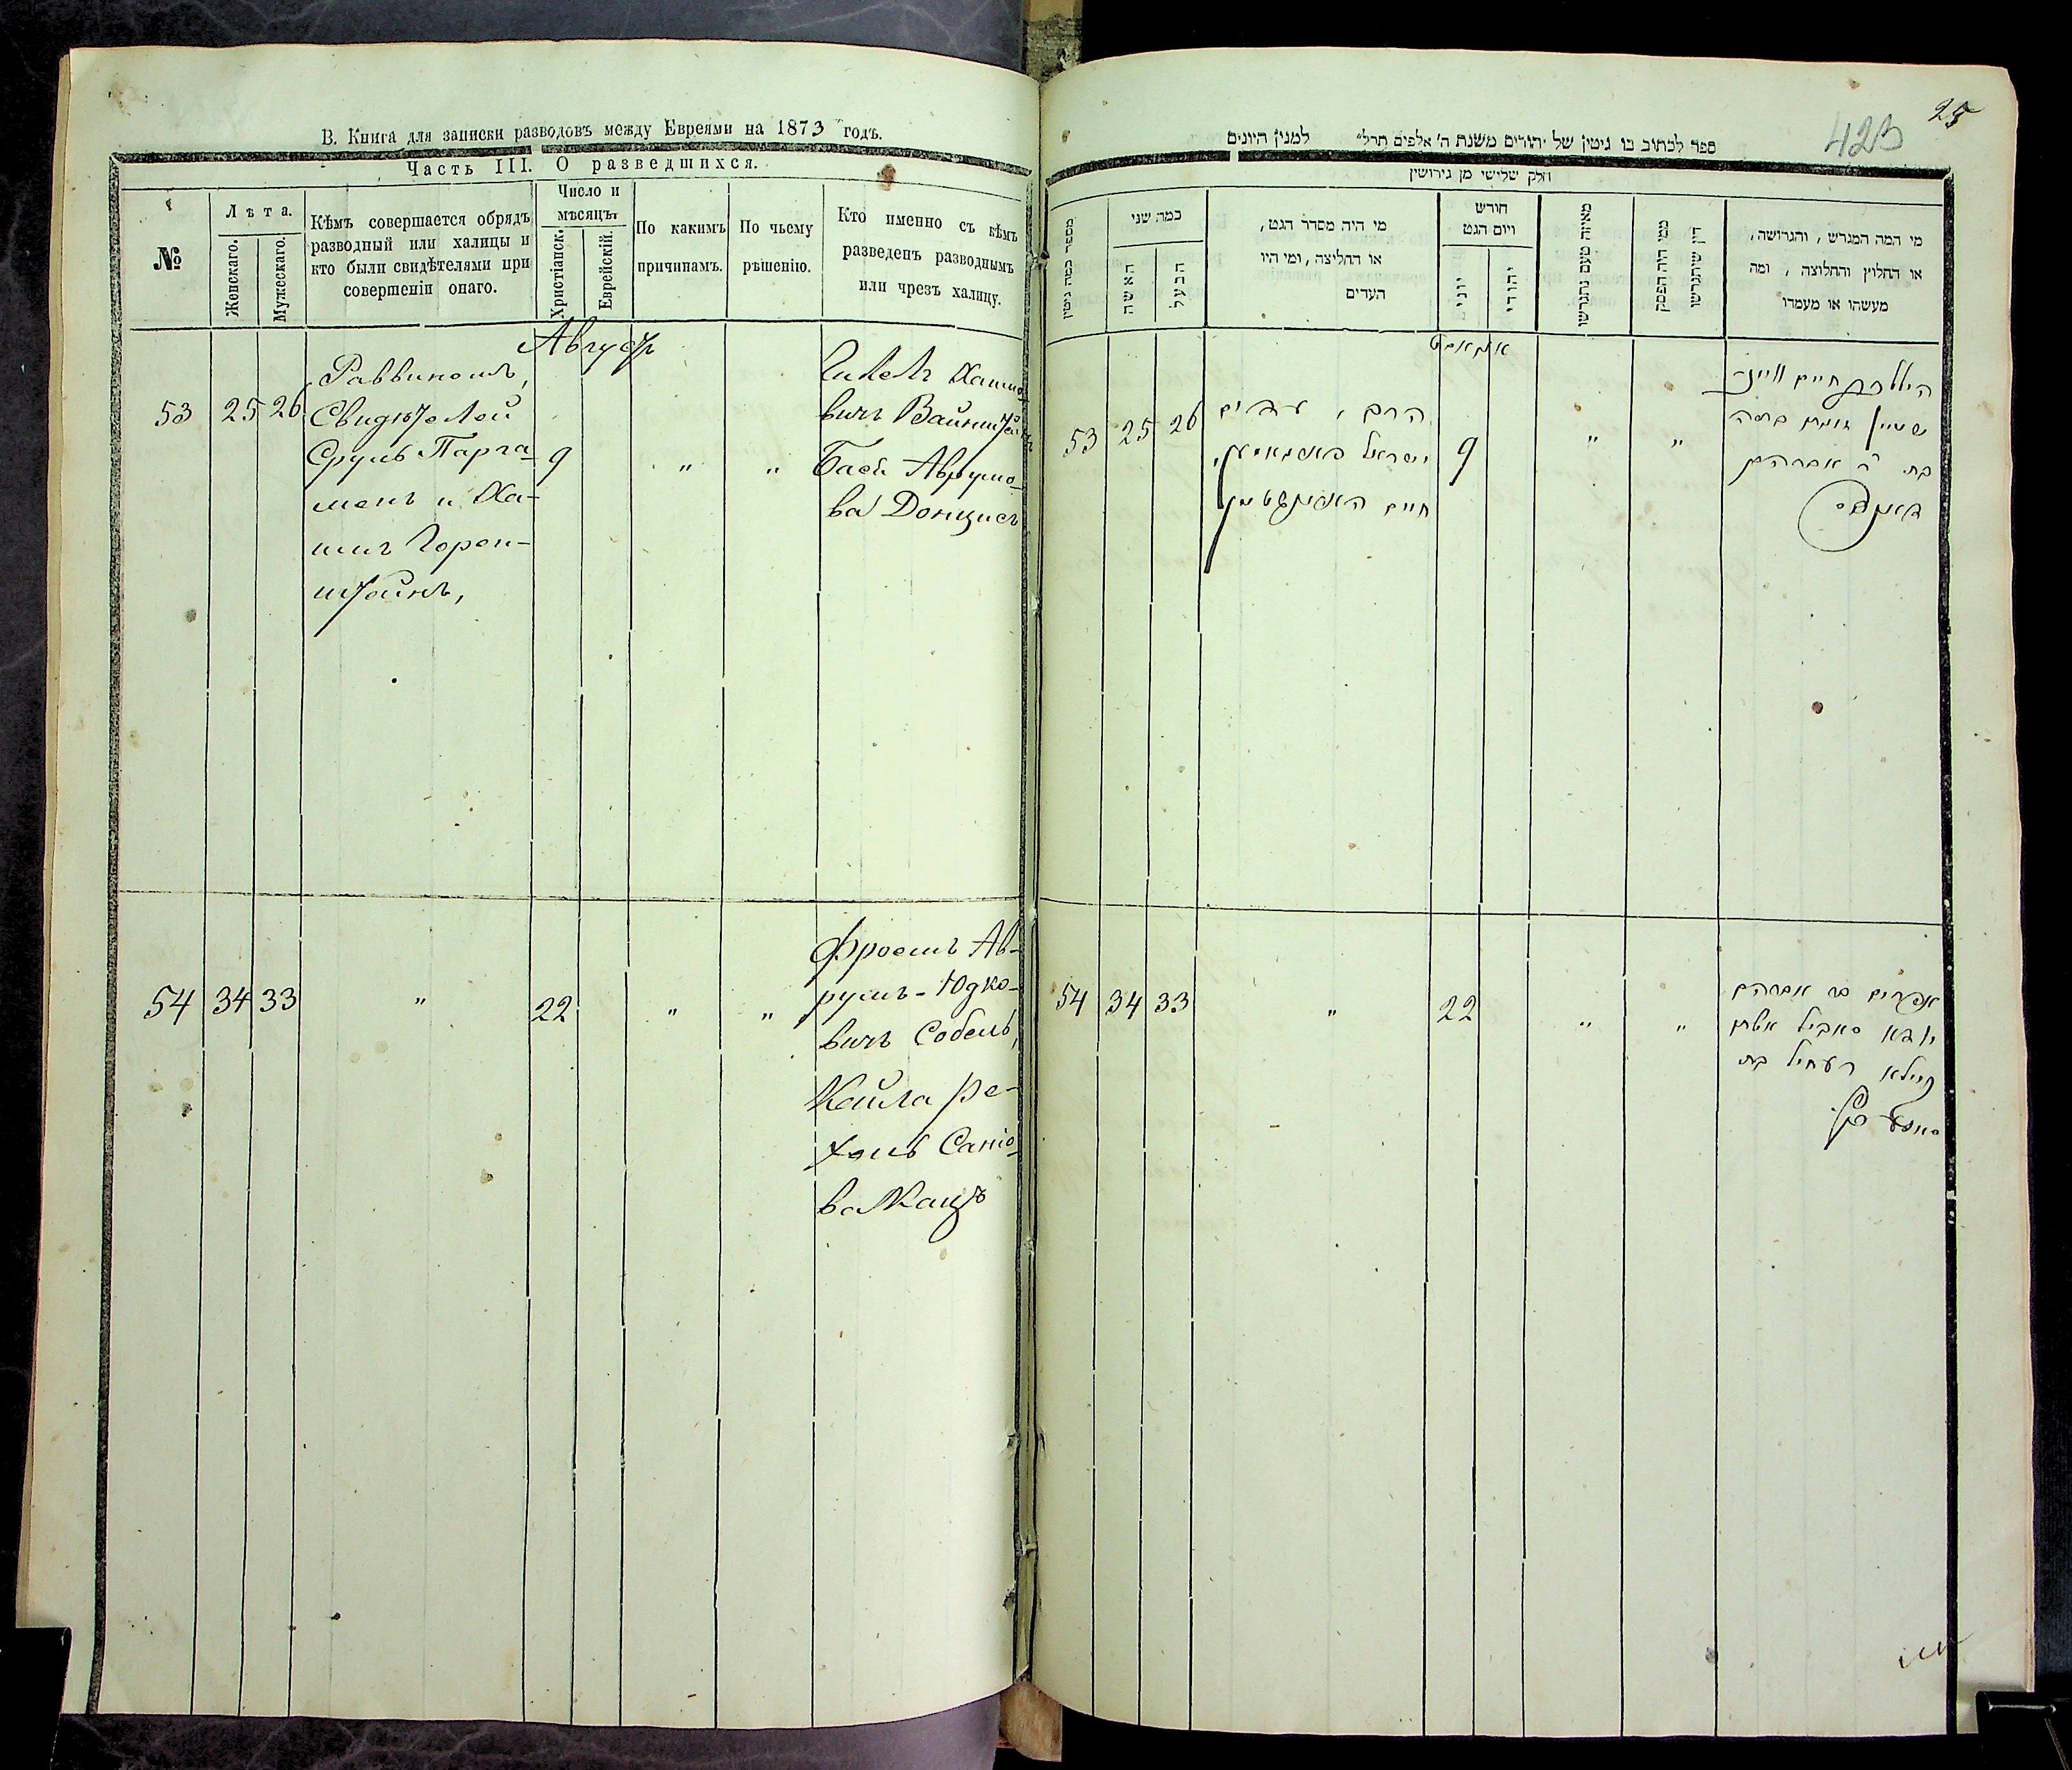 В. Книга для записки разводовъ между Евреями на 1873 годъ.
Часть III. О разведшихся.
№
Лѣта.
Женскаго.
Мужескаго.
Кѣмъ совершается обрядъ
разводный или халицы и
кто были свидѣтелями при
совершеніи онаго.
Число и
мѣсяцъ.
Христіанск.
Еврейскій.
По какимъ
причинамъ.
По чьему
рѣшенію.
Кто именно съ кѣмъ
разведенъ разводнымъ
или чрезъ халицу.
Августъ
53 25 26
Раввиномъ,
Свидѣтелей
Сруль Парга-
менъ и Ха-
имъ Горен-
штейнъ,
9
" "
Хаимо-
вичъ Вайнштейнъ
Бася Аврумо-
ва Донцисъ
54 34 33 " 22 " "
Фроимъ Ав-
румъ-Юдко-
вичъ Собель,
Кейла Ре-
хель Саніо-
ва Кацъ
25
423
ספר לכתוב בו גיטין של יהודים משנת ה' אלפים תרל" למנין היונים
חלק שלישי מן גירושין
מספר כמה גיטין
כמה שני
האשה
הבעל
מי היה מסדר הגט,
או החליצה, ומי היו
העדים
חורש
ויום הגט
יונים
יהודי
מאיזה טעם נתגרשו
ממי היה הפסק
דין שיתגרשו
מי המה המגרש, והגרושה,
או החולץ והחלוצה, ומה
מעשהו או מעמדו
53 25 26
הרב, עדים
ישראל
חיים
9
" "
חיים וויינ-
שטיין
בת ר' אברהם
54 34 33 " 22 " "
אפרים בר אברהם
יודא סאביל
קיילא רעחיל בת